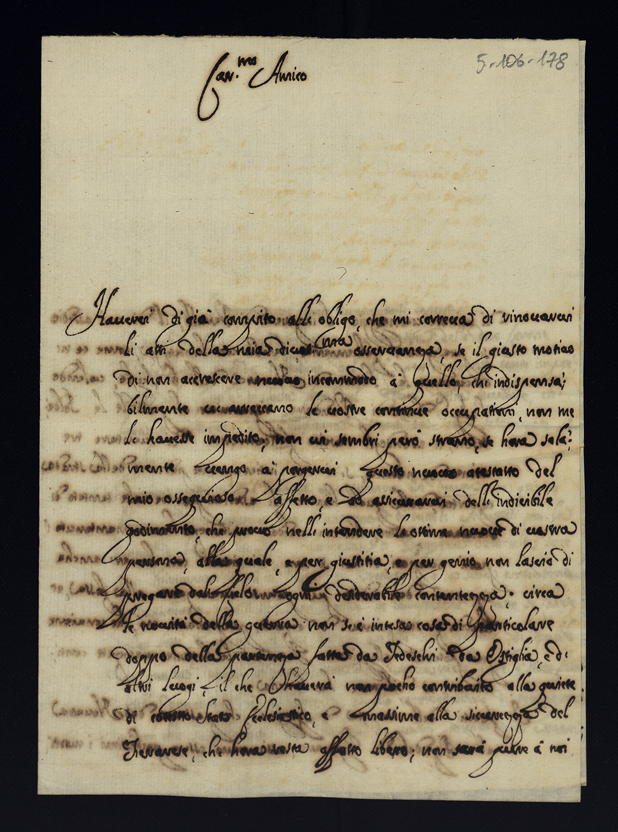 5-106-178
Car.mo Amico
Haverei di già compito alli obligo, che mi correva di rinovarvi
li atti della mia divotissma osservanza, se il giusto motivo
di non accrescere nuovo incommodo à quello, chi indispensa-
bilmente vi arreccano le vostre continue occupationi, non me
lo havesse impedito, non vi sembri però strano, se hora sola-
mente vengo à porgervi questo nuovo atestatto del
mio ossequioso affetto, e ad assicurarvi dell'indicibile
godimento, che provo nell'intendere le ottime nuove di vostra
persona, alla quale, e per giustitia, e per genio non lascio di
pregare dal Cielo ogni desiderabile contentezza. circa
le novità della guerra non si è intesa cosa di particolare
doppo della partenza fatta da Tedeschi da Ostiglia, e di
altri luogi, il che haverà non pocho contribuito alla quiete
di cotesto stato Eclesiastico, e massime alla sicurezza del
Ferrarese, che hora resta affatto libero; non sarà pure à noi